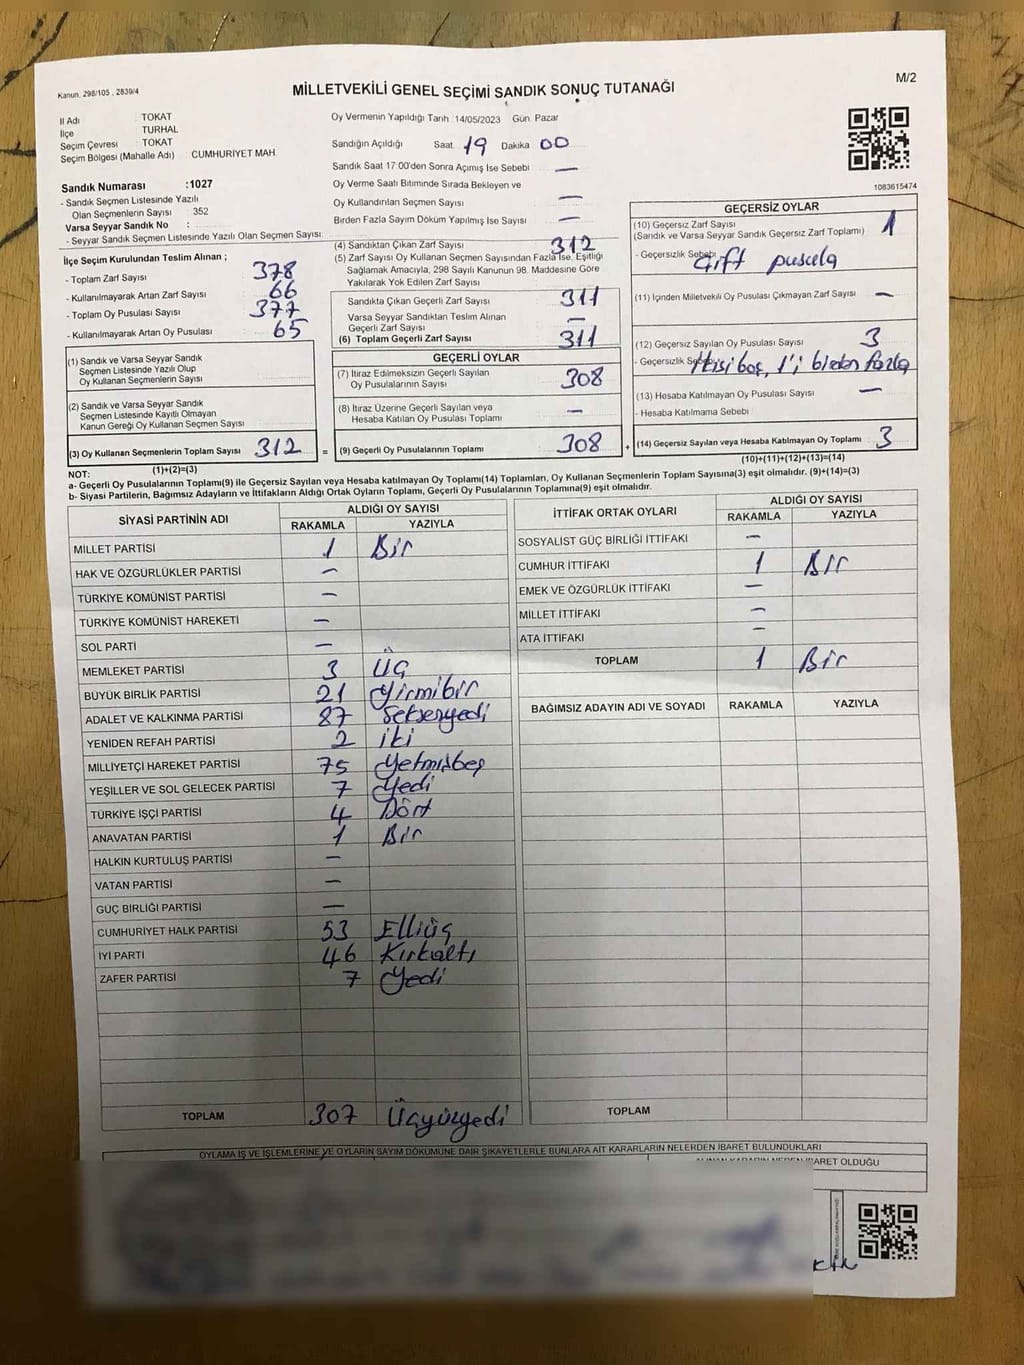 Kanun, 298/105 , 2839/4
MİLLETVEKİLİ GENEL SEÇİMİ SANDIK SONUÇ TUTANAĞI
M/2
İl Adı : TOKAT
İlçe : TURHAL
Seçim Çevresi : TOKAT
Seçim Bölgesi (Mahalle Adı) CUMHURİYET MAH.
Sandık Numarası :1027
- Sandık Seçmen Listesinde Yazılı
Olan Seçmenlerin Sayısı 352
Varsa Seyyar Sandık No :
- Seyyar Sandık Seçmen Listesinde Yazılı Olan Seçmen Sayısı:
İlçe Seçim Kurulundan Teslim Alınan ;
- Toplam Zarf Sayısı 378
- Kullanılmayarak Artan Zarf Sayısı 66
- Toplam Oy Pusulası Sayısı 377
- Kullanılmayarak Artan Oy Pusulası 65
(1) Sandık ve Varsa Seyyar Sandık
Seçmen Listesinde Yazılı Olup
Oy Kullanan Seçmenlerin Sayısı
(2) Sandık ve Varsa Seyyar Sandık
Seçmen Listesinde Kayıtlı Olmayan
Kanun Gereği Oy Kullanan Seçmen Sayısı
(3) Oy Kullanan Seçmenlerin Toplam Sayısı 312 =
(1)+(2)=(3)
Oy Vermenin Yapıldığı Tarih :14/05/2023 Gün Pazar
Sandığın Açıldığı Saat 19 Dakika 00
Sandık Saat 17:00'den Sonra Açımış İse Sebebi —
Oy Verme Saati Bitiminde Sırada Bekleyen ve
Oy Kullandırılan Seçmen Sayısı —
Birden Fazla Sayım Döküm Yapılmış İse Sayısı —
(4) Sandıktan Çıkan Zarf Sayısı 312
(5) Zarf Sayısı Oy Kullanan Seçmen Sayısından Fazla İse, Eşitliği
Sağlamak Amacıyla, 298 Sayılı Kanunun 98. Maddesine Göre
Yakılarak Yok Edilen Zarf Sayısı
Sandıkta Çıkan Geçerli Zarf Sayısı 311
Varsa Seyyar Sandıktan Teslim Alınan
Geçerli Zarf Sayısı —
(6) Toplam Geçerli Zarf Sayısı 311
GEÇERLİ OYLAR
(7) İtiraz Edilmeksizin Geçerli Sayılan
Oy Pusulalarının Sayısı 308
(8) İtiraz Üzerine Geçerli Sayılan veya
Hesaba Katılan Oy Pusulası Toplamı —
(9) Geçerli Oy Pusulalarının Toplamı 308 +
1083615474
GEÇERSİZ OYLAR
(10) Geçersiz Zarf Sayısı 1
(Sandık ve Varsa Seyyar Sandık Geçersiz Zarf Toplamı)
- Geçersizlik Sebebi Çift pusula
(11) İçinden Milletvekili Oy Pusulası Çıkmayan Zarf Sayısı —
(12) Geçersiz Sayılan Oy Pusulası Sayısı 3
- Geçersizlik Sebebi İkisi boş, 1'i birden fazla
(13) Hesaba Katılmayan Oy Pusulası Sayısı —
- Hesaba Katılmama Sebebi
(14) Geçersiz Sayılan veya Hesaba Katılmayan Oy Toplamı 3
(10)+(11)+(12)+(13)=(14)
NOT:
a- Geçerli Oy Pusulalarının Toplamı(9) ile Geçersiz Sayılan veya Hesaba Katılmayan Oy Toplamı(14) Toplamları, Oy Kullanan Seçmenlerin Toplam Sayısına(3) eşit olmalıdır. (9)+(14)=(3)
b- Siyasi Partilerin, Bağımsız Adayların ve İttifakların Aldığı Ortak Oyların Toplamı, Geçerli Oy Pusulalarının Toplamına(9) eşit olmalıdır.
SİYASİ PARTİNİN ADI ALDIĞI OY SAYISI
RAKAMLA YAZIYLA
MİLLET PARTİSİ 1 Bir
HAK VE ÖZGÜRLÜKLER PARTİSİ —
TÜRKİYE KOMÜNİST PARTİSİ —
TÜRKİYE KOMÜNİST HAREKETİ —
SOL PARTİ —
MEMLEKET PARTİSİ 3 Üç
BÜYÜK BİRLİK PARTİSİ 21 Yirmibir
ADALET VE KALKINMA PARTİSİ 87 Seksenyedi
YENİDEN REFAH PARTİSİ 2 iki
MİLLİYETÇİ HAREKET PARTİSİ 75 Yetmişbeş
YEŞİLLER VE SOL GELECEK PARTİSİ 7 Yedi
TÜRKİYE İŞÇİ PARTİSİ 4 Dört
ANAVATAN PARTİSİ 1 Bir
HALKIN KURTULUŞ PARTİSİ —
VATAN PARTİSİ —
GÜÇ BİRLİĞİ PARTİSİ —
CUMHURİYET HALK PARTİSİ 53 Elliüç
İYİ PARTİ 46 Kırkaltı
ZAFER PARTİSİ 7 Yedi
TOPLAM 307 Üçyüzyedi
İTTİFAK ORTAK OYLARI ALDIĞI OY SAYISI
RAKAMLA YAZIYLA
SOSYALİST GÜÇ BİRLİĞİ İTTİFAKI —
CUMHUR İTTİFAKI 1 Bir
EMEK VE ÖZGÜRLÜK İTTİFAKI —
MİLLET İTTİFAKI —
ATA İTTİFAKI —
TOPLAM 1 Bir
BAĞIMSIZ ADAYIN ADI VE SOYADI RAKAMLA YAZIYLA
TOPLAM
OYLAMA İŞ VE İŞLEMLERİNE VE OYLARIN SAYIM DÖKÜMÜNE DAİR ŞİKAYETLERLE BUNLARA AİT KARARLARIN NELERDEN İBARET BULUNDUKLARI
ALINAN KARARIN NEDEN İBARET OLDUĞU